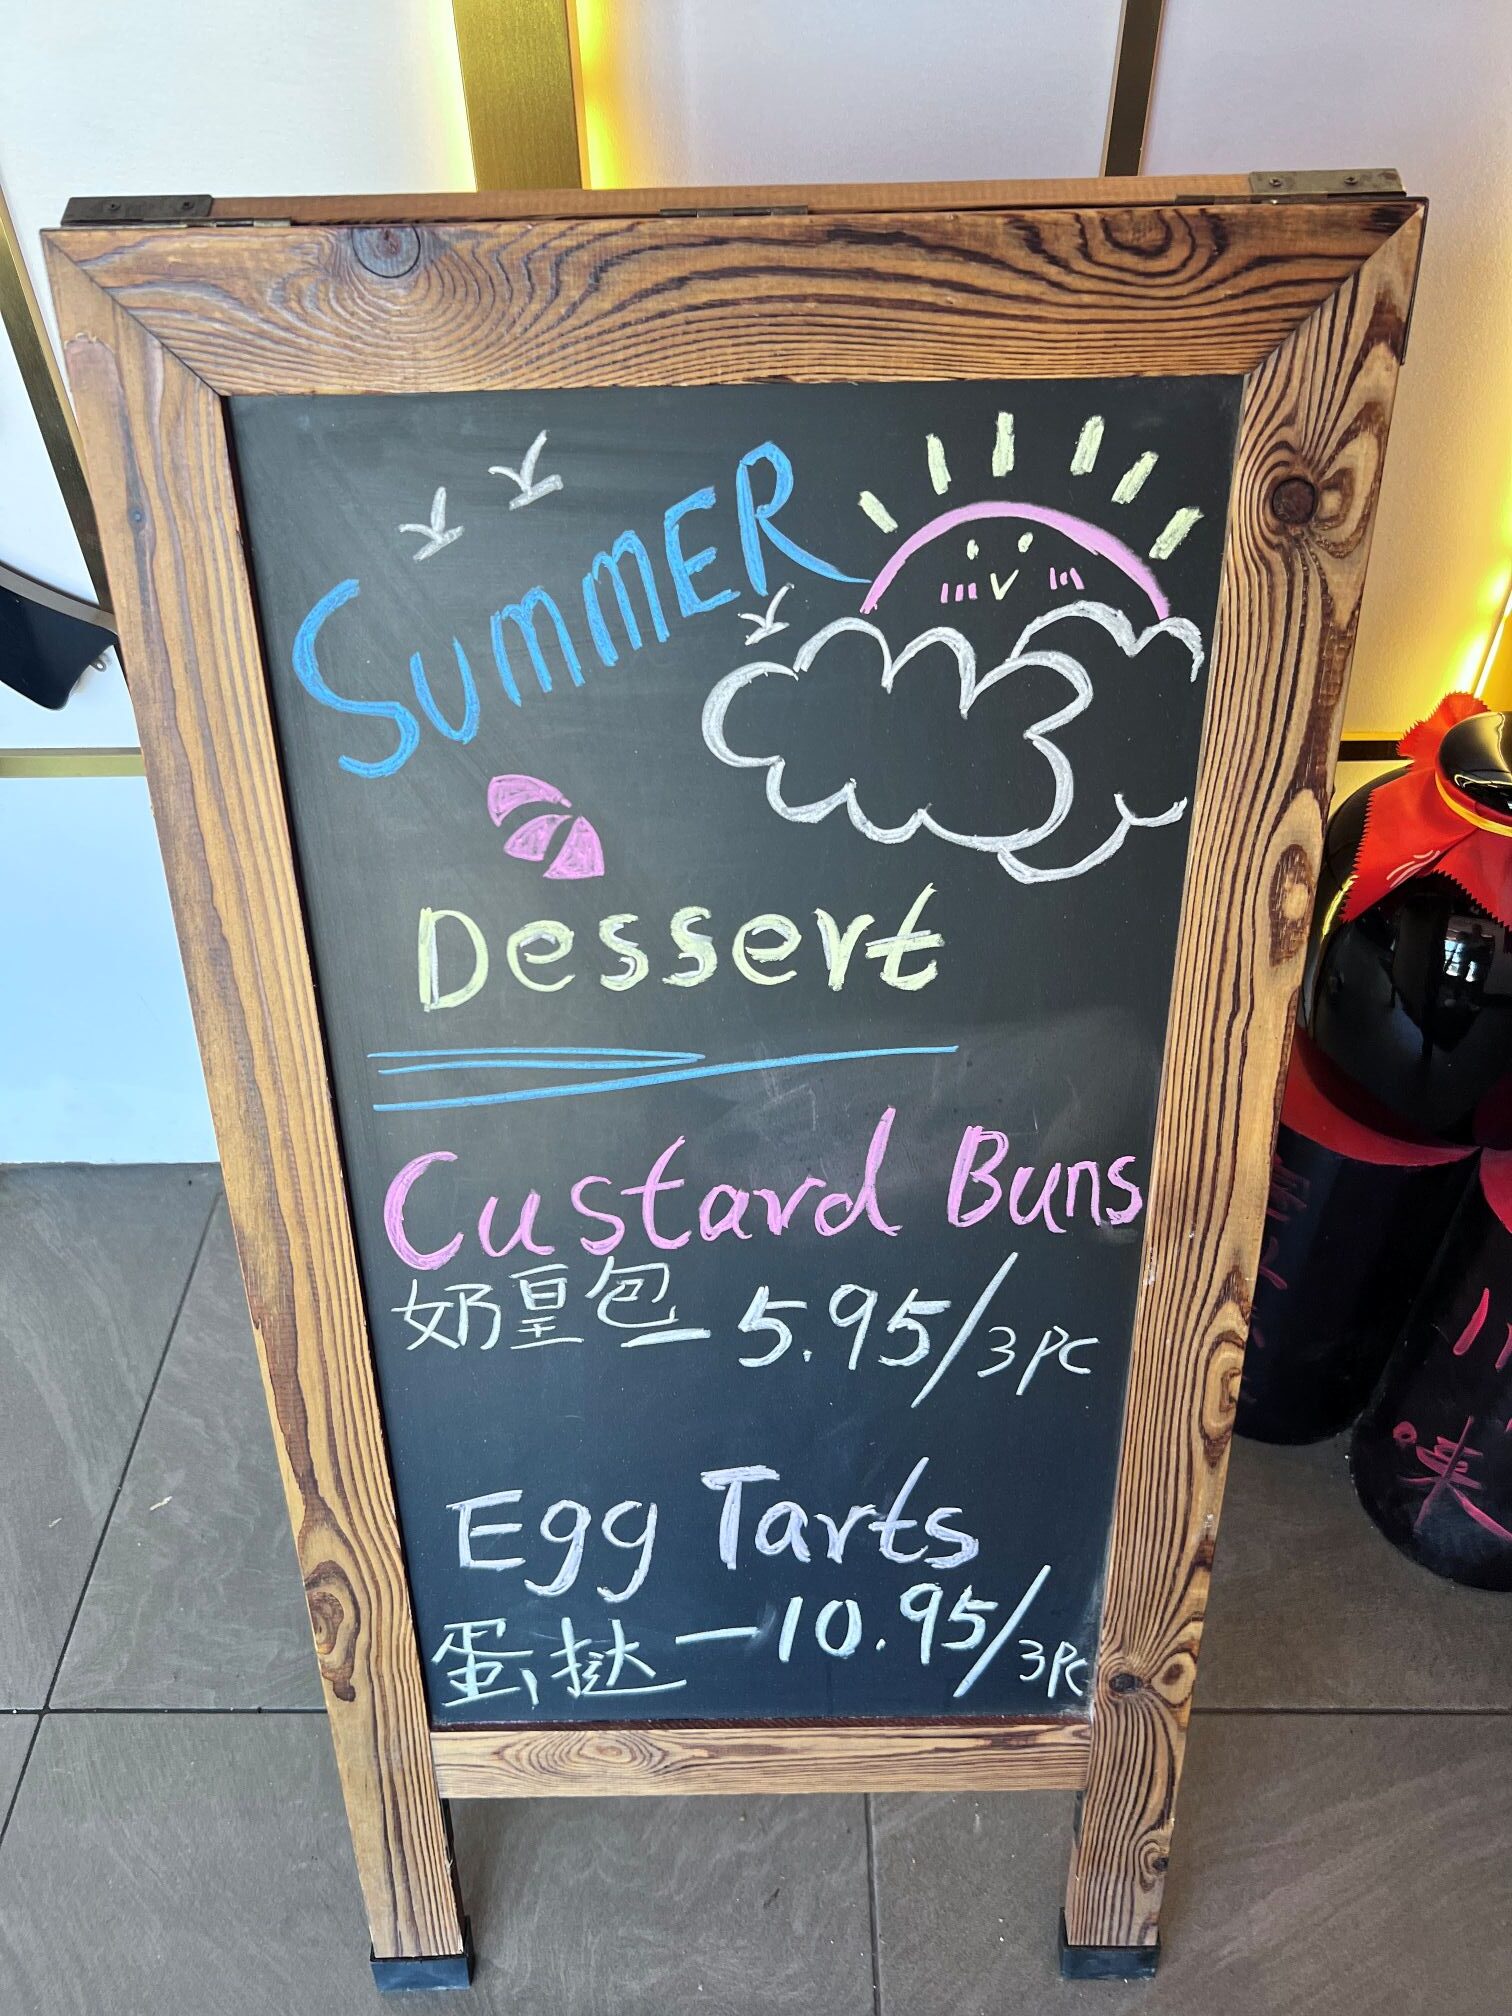 SUMMER
Dessert
Custard Buns
奶皇包 - 5.95/3PC
Egg Tarts
蛋挞 - 10.95/3PC
川
味